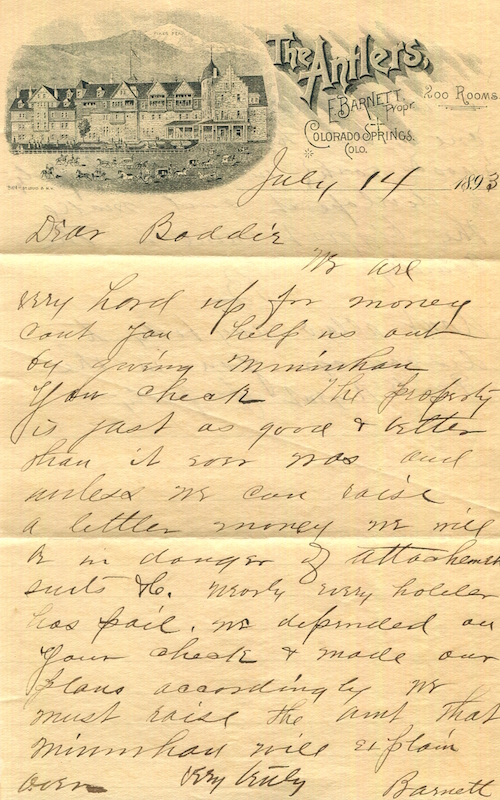 The Antlers,
E. BARNETT, Propr
200 ROOMS
COLORADO SPRINGS.
COLO.
July 14 1893
Dear Boddie
We are
very hard up for money
cant you help us out
by giving Minnihan
your check The property
is just as good & better
than it ever was and
unless we can raise
a little money we will
be in danger of attachment
suits &c. nearly every holder
has paid. we depended on
your check & made our
plans accordingly we
must raise the amt that
Minnihan will explain
over very truly
Barnett